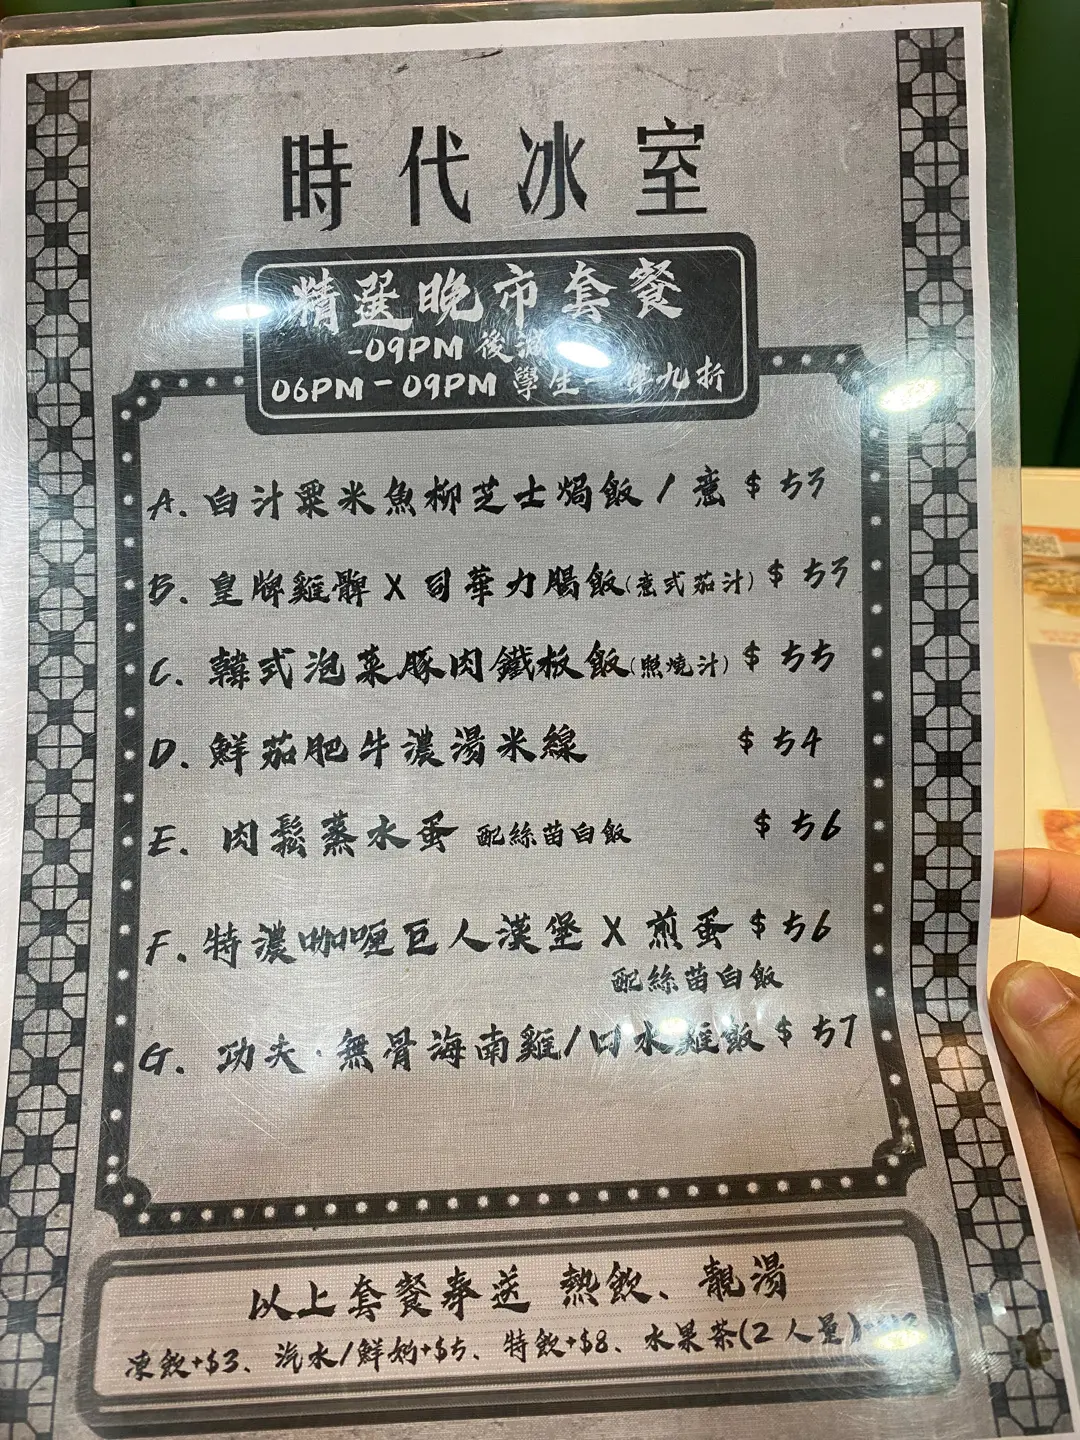 時代冰室
精選晚市套餐
-09PM 後
06PM-09PM 學生 九折
A. 白汁粟米魚柳芝士焗飯 / 意 $ 53
B. 皇牌雞髀 X 司華力腸飯(意式茄汁) $ 53
C. 韓式泡菜豚肉鐵板飯(照燒汁) $ 55
D. 鮮茄肥牛濃湯米線 $ 54
E. 肉鬆蒸水蛋 配絲苗白飯 $ 56
F. 特濃咖喱巨人漢堡 X 煎蛋 $ 56
配絲苗白飯
G. 功夫·無骨海南雞/口水雞飯 $ 57
以上套餐奉送 熱飲、靚湯
凍飲+$3、汽水/鮮奶+$5、特飲+$8、水果茶(2人量)